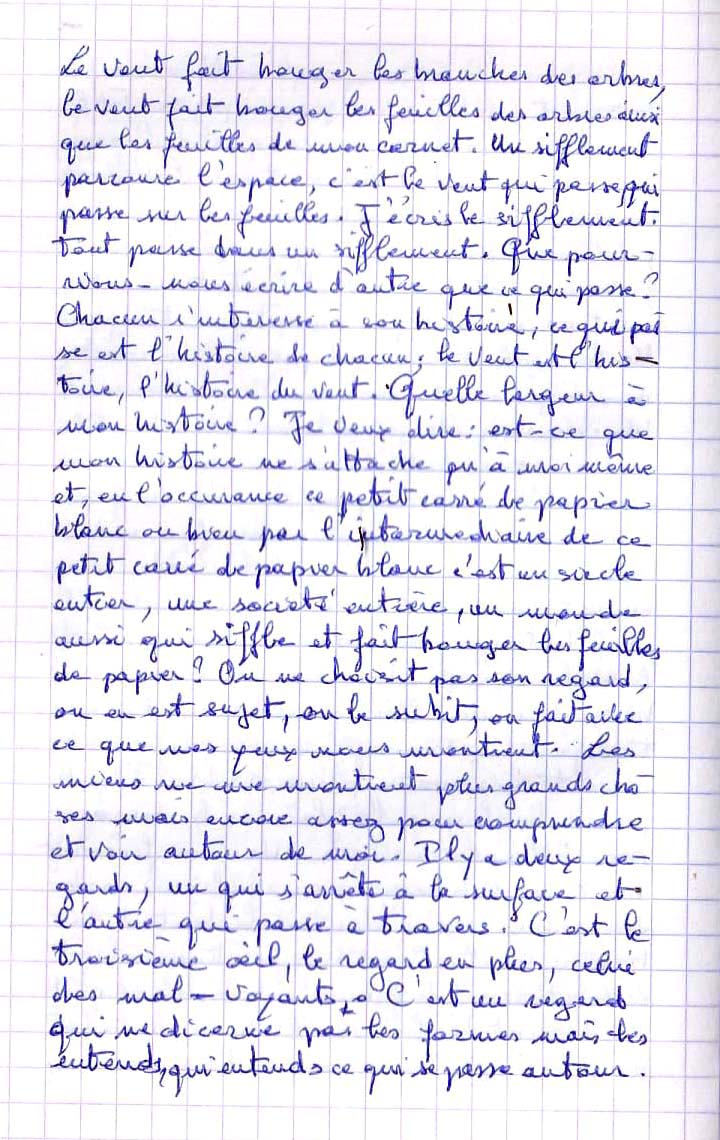 Le vent fait bouger les branches des arbres,
le vent fait bouger les feuilles des arbres ainsi
que les feuilles de mon carnet. Un sifflement
parcoure l'espace, c'est le vent qui passe, qui
passe sur les feuilles. J'écris le sifflement.
Tout passe dans un sifflement. Que pour-
rions-nous écrire d'autre que ce qui passe?
Chacun s'interesse à son histoire, ce qui pas
se est l'histoire de chacun; le vent est l'his-
toire, l'histoire du vent. Quelle largeur à
mon histoire? Je veux dire: est-ce que
mon histoire ne s'attache qu'à moi même
et, en l'occurance ce petit carré de papier
blanc ou bien par l'intermediaire de ce
petit carré de papier blanc c'est un siècle
entier, une société entière, un monde
aussi qui siffle et fait bouger les feuilles
de papier? On ne choisit pas son regard,
on en est sujet, on le subit, on fait avec
ce que nos yeux nous montrent. Les
miens ne me montrent plus grands cho-
ses mais encore assez pour comprendre
et voir autour de moi. Il y a deux re-
gards, un qui s'arrête à la surface et
l'autre qui passe à travers. C'est le
troisième œil, le regard en plus, celui
des mal-voyants. C'est un regard
qui ne dicerne pas les formes mais les
entends, qui entends ce qui se passe autour.